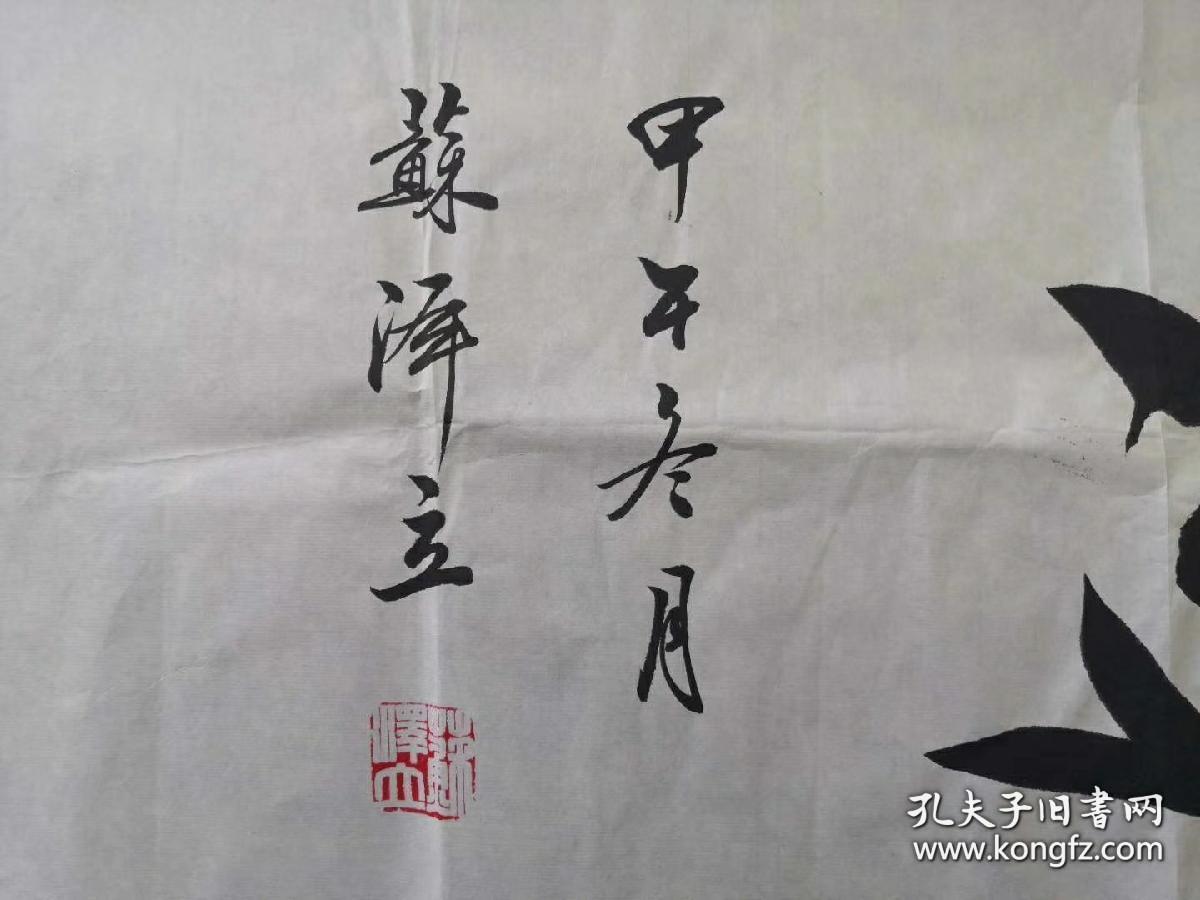 甲午冬月
蘇澤立
蘇澤立
孔夫子旧书网
www.kongfz.com